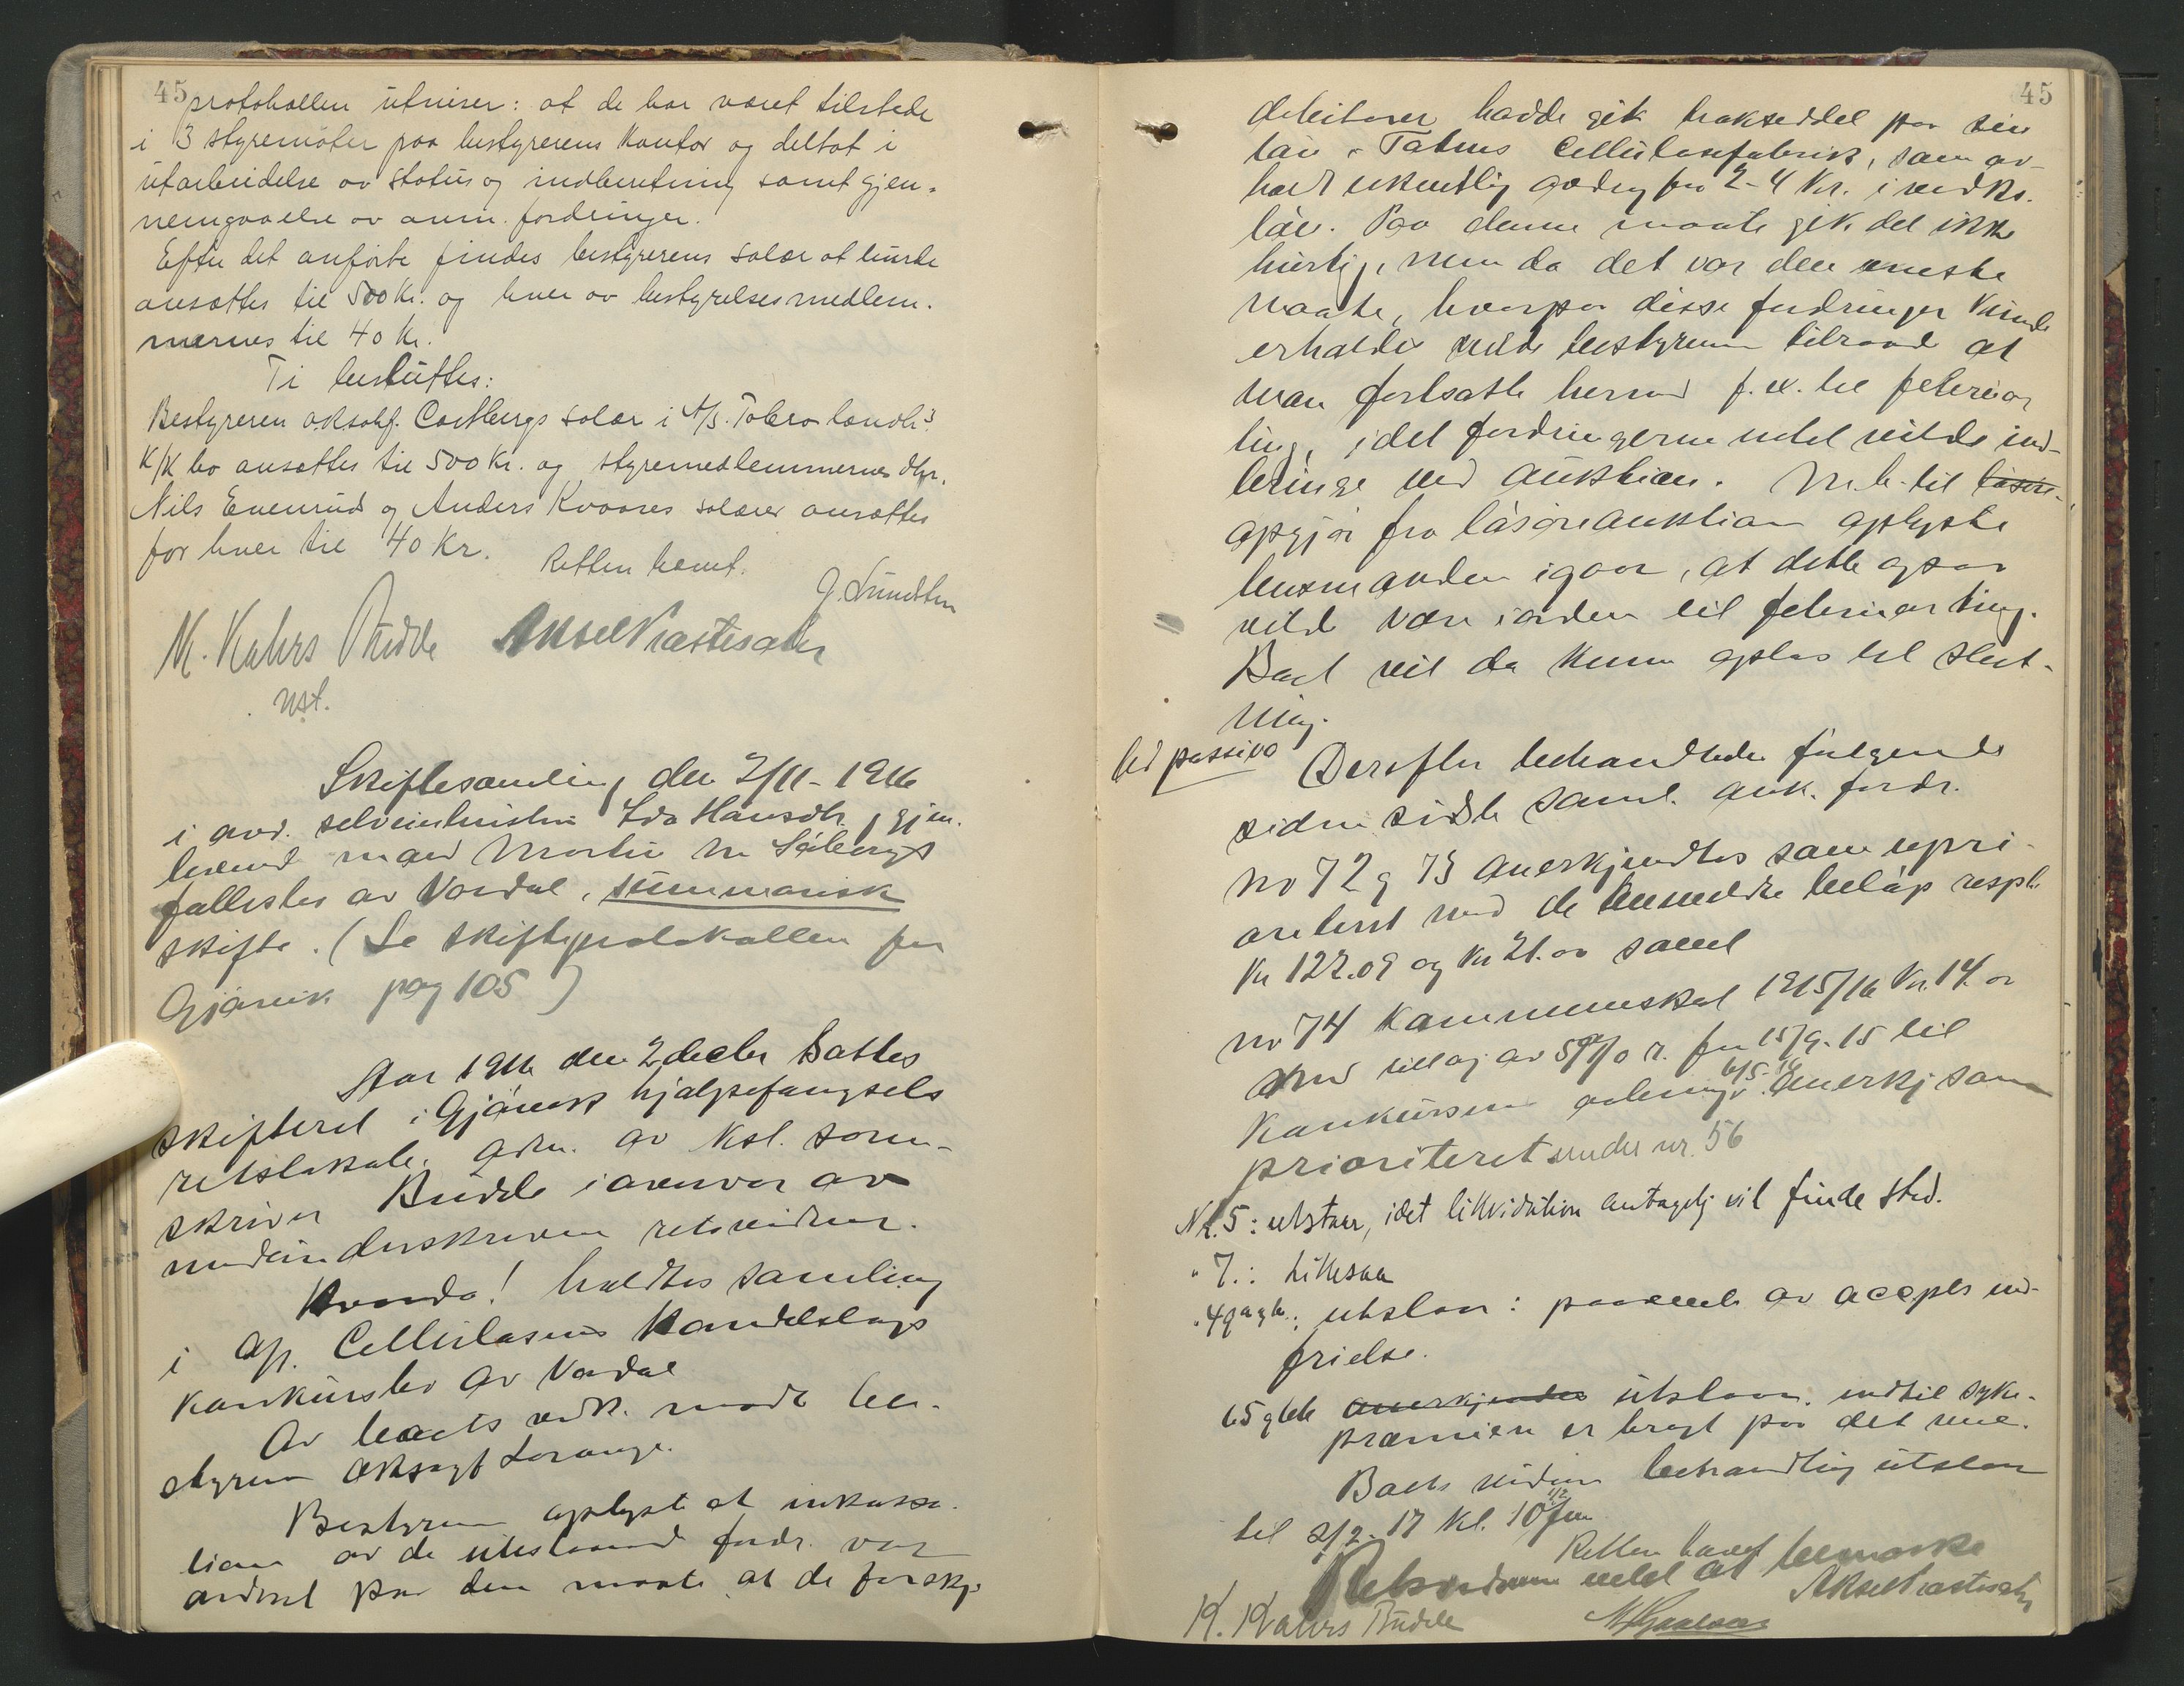 45
protokollen utviser: at de har været tilstede
i 3 styremøter paa bestyrerens kontor og deltat i
utarbeidelse av status og indberetning samt gjen-
nemgaaelse av anm. fordringer.
Efter det anførte findes bestyrerens salær at burde
ansættes til 500 Kr. og hver av bestyrelsesmedlem-
mernes til 40 Kr.
Ti besluttes:
Bestyreren o.r.sakf. Castbergs salær i A/S. Tobro landh.s
K/K bo ansættes til 500 Kr. og styremedlemmernes dhr.
Nils Evenrud og Anders Kvaares salærer ansættes
for hver til 40 Kr.
Retten hævet.
G. Lundsten
K. Kahrs Budde Aksel Præstesæter
nst.
Skiftesamling den 2/11-1916
i avd. selveierhustru Ida Hansdtr., gjen-
levend mand Martin M. Søbergs
fællesbo av Vardal, summarisk
skifte. (Se skifteprotokollen for
Gjøvik pag 105)
Aar 1916 den 2 decbr sattes
skifteret i Gjøviks hjælpefængsels
retslokale. Adm. av kst. soren-
skriver Budde i overvær av
medunderskrevne retsvidner.
Hvorda! holdtes samling
i Op. Cellulosens Handelslags
konkursbo av Vardal
Av boets vedk. møtte be-
styreren o.r.sagf Lorange.
Bestyreren oplyste at inkassa-
tion av de utestaaende fordr. var
ordnet paa den maate at de forskj.
45
debitorer hadde git trækseddel paa sin
løn v. Toten Cellulosefabrik, som av-
holdt ukentlig avdrag fra 2-4 Kr. i vedks.
løn. Paa denne maate gik det ikke
hurtig, men da det var den eneste
maate, hvorpaa disse fordringer kunde
erholdes vilde bestyreren tilraade at
man fortsatte hermed f. ex. til februar
ting, idet fordringerne intet vilde ind-
bringe ved auktion. M. h. til løsøre-
opgjør fra løsøreauktion oplyste
lensmanden igaar, at dette ogsaa
vilde være iorden til februarting.
Boet vil da kunne oplas til slut-
ning.
bd passiva Derefter behandledes følgende
siden sidste saml. ank. fordr.
No 72 g 73 anerkjendtes som upri-
oritert med de anmeldte beløp respt.
Kr 122.09 og Kr 21.00 samt
No 74 Kommuneskat 1915/16 Kr. 14.00
med tillæg av 5% r. fra 15/9-15 til
Konkursens aabning 6/5-16. Anerkj som
prioriteret under nr. 56
Nr. 5: utstaar, idet likvidation antagelig vil finde sted.
" 7.: Likesaa
" 49 :, utstaar: paavente av accepts ind-
frielse.
65 g 66 anerkjendes utstaar, indtil syke-
præmien er bragt paa det rene.
Boets videre behandling utstaar
til 2/2-17 kl. 10 1/2 fm
Retten hævet
Retsvidnene intet at bemærke
Aksel Præstesæter
K. Kahrs Budde